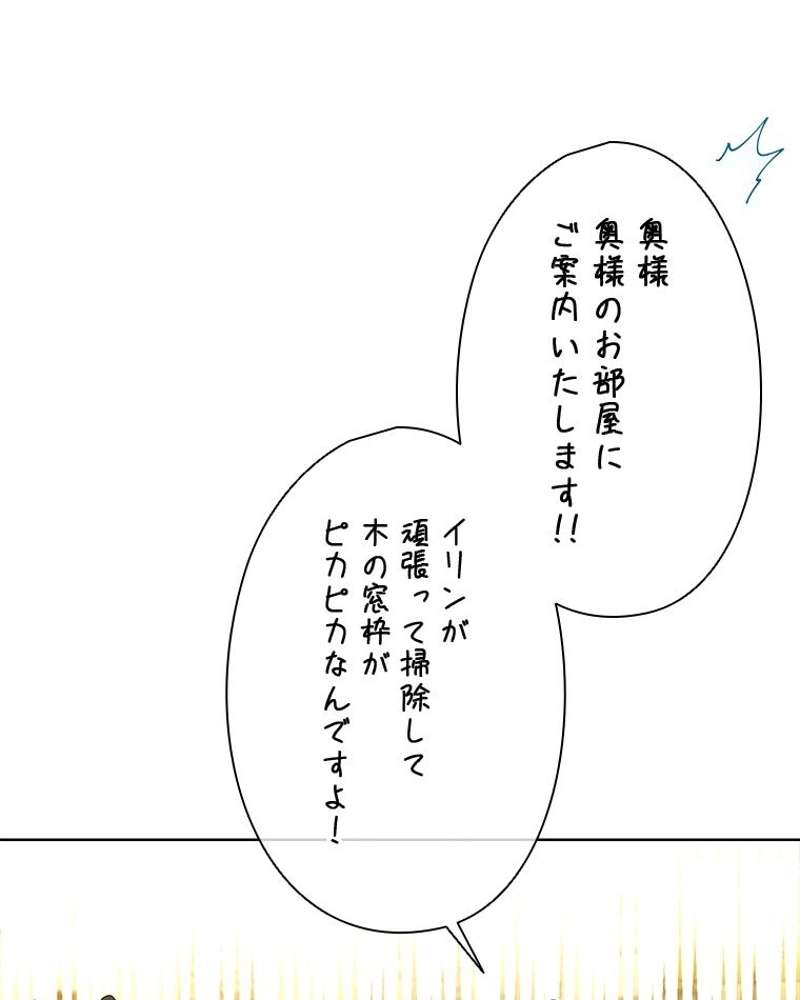 奥様
奥様のお部屋に
ご案内いたします!!
イリンが
頑張って掃除して
木の窓枠が
ピカピカなんですよ!